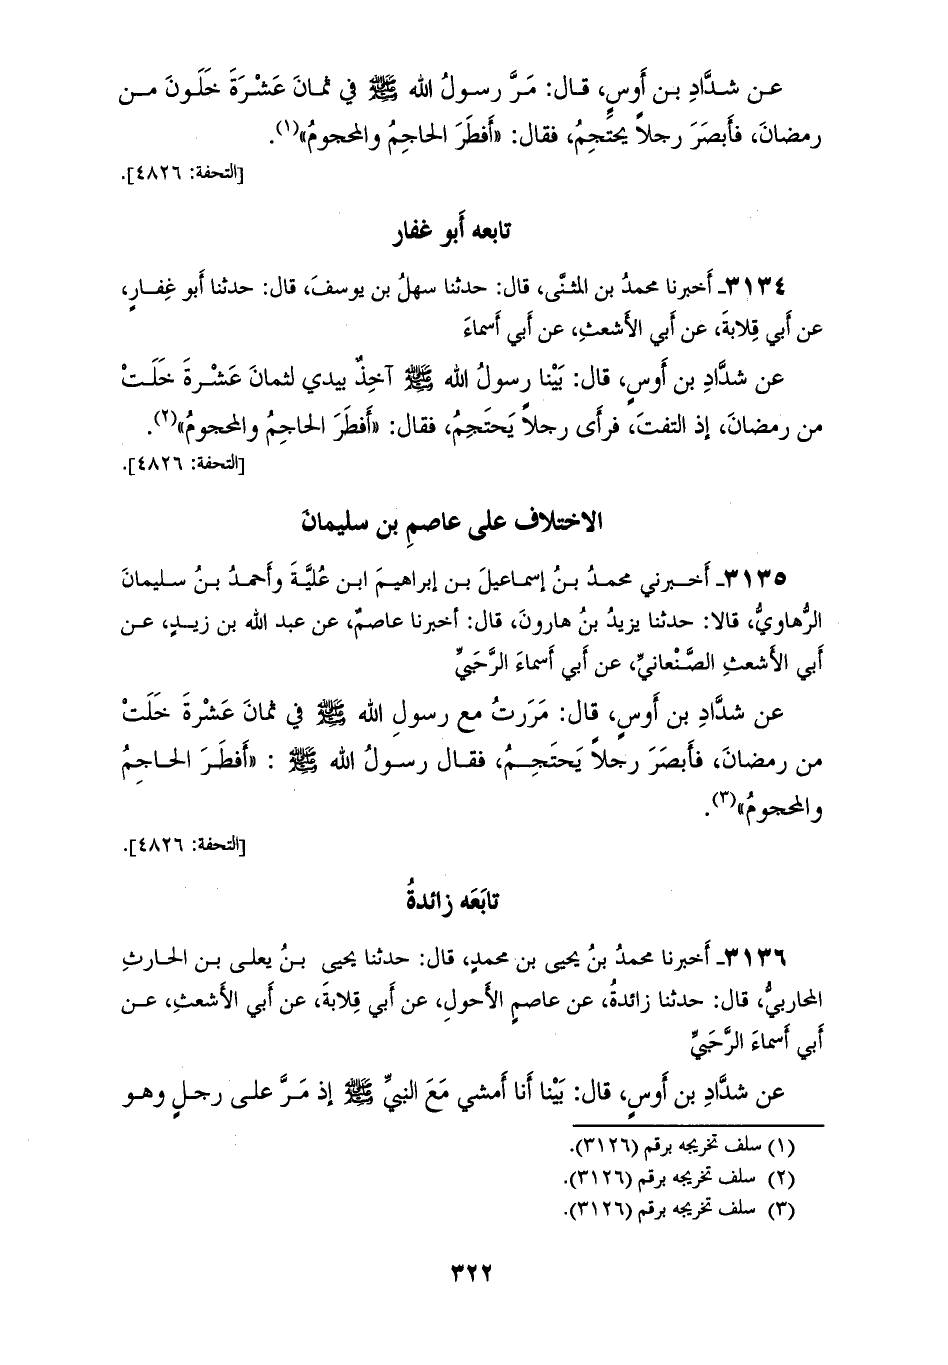 عن شدَّادِ بن أَوسٍ، قال: مَرَّ رسولُ الله ﷺ في ثمانَ عَشْرَةَ خَلَونَ من
رمضانَ، فأَبصَرَ رجلاً يحتَجِمُ، فقال: «أَفطَرَ الحاجِمُ والمحجومُ»(١).
[التحفة: ٤٨٢٦].
تابعه أَبو غفار
٣١٣٤ـ أَخبرنا محمدُ بن المثنَّى، قال: حدثنا سهلُ بن يوسفَ، قال: حدثنا أَبو غِفارٍ،
عن أَبي قِلابةَ، عن أَبي الأَشعثِ، عن أَبي أَسماءَ
عن شدَّادِ بن أَوسٍ، قال: بَيْنا رسولُ الله ﷺ آخِذٌ بيدي لثمانَ عَشْرةَ خَلَتْ
من رمضانَ، إذ التفتَ، فرأى رجلاً يَحتَجِمُ، فقال: «أَفطَرَ الحاجِمُ والمحجومُ»(٢).
[التحفة: ٤٨٢٦].
الاختلاف على عاصمِ بن سليمانَ
٣١٣٥ـ أَخبرني محمدُ بنُ إسماعيلَ بن إبراهيمَ ابن عُليَّةَ وأَحمدُ بنُ سليمانَ
الرُّهاويُّ، قالا: حدثنا يزيدُ بنُ هارونَ، قال: أخبرنا عاصمٌ، عن عبد الله بن زيدٍ، عن
أَبي الأَشعثِ الصَّنْعانيِّ، عن أَبي أَسماءَ الرَّحَبيِّ
عن شدَّادِ بن أَوسٍ، قال: مَرَرتُ مع رسولِ الله ﷺ في ثمانَ عَشْرةَ خَلَتْ
من رمضانَ، فأَبصَرَ رجلاً يَحتَجِمُ، فقال رسولُ الله ﷺ : «أَفطَرَ الحاجِمُ
والمحجومُ»(٣).
[التحفة: ٤٨٢٦].
تابَعَه زائدةُ
٣١٣٦ـ أَخبرنا محمدُ بنُ يحيى بن محمدٍ، قال: حدثنا يحيى بنُ يعلى بن الحارثِ
المحاربيُّ، قال: حدثنا زائدةُ، عن عاصمٍ الأَحولِ، عن أَبي قِلابةَ، عن أَبي الأَشعثِ، عن
أَبي أَسماءَ الرَّحَبيِّ
عن شدَّادِ بن أَوسٍ، قال: بَيْنا أَنا أَمشي مَعَ النبيِّ ﷺ إذ مَرَّ على رجلٍ وهو
(١) سلف تخريجه برقم (٣١٢٦).
(٢) سلف تخريجه برقم (٣١٢٦).
(٣) سلف تخريجه برقم (٣١٢٦).
٣٢٢